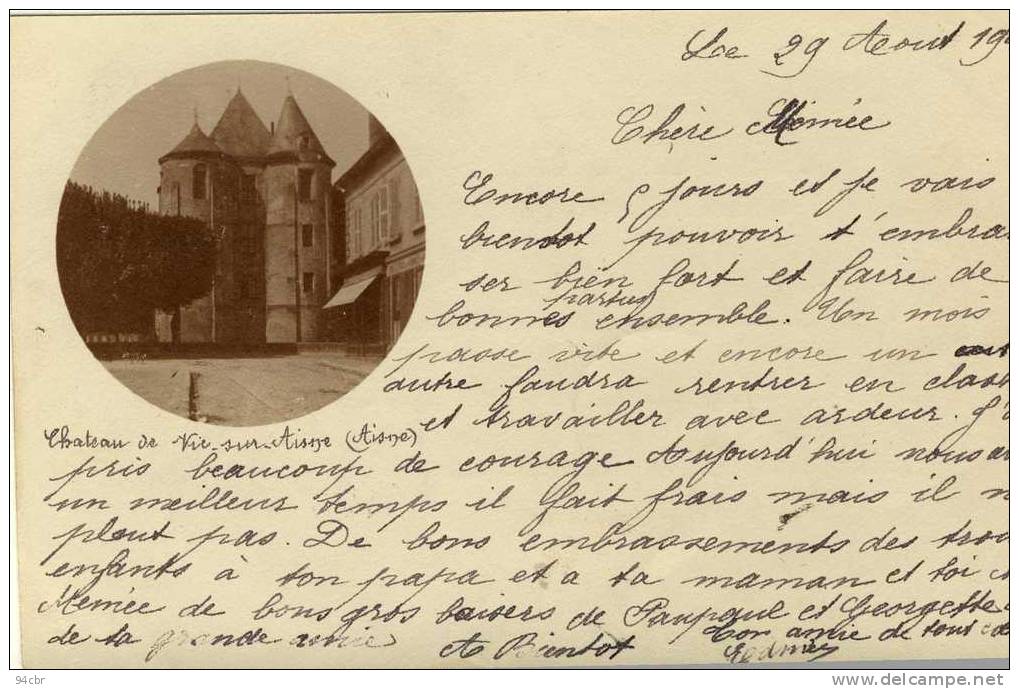 Le 29 Aout 19
Chère Mémée
Encore 5 jours et je vais
bientot pouvoir t'embras
ser bien fort et faire de
bonnes parties ensemble. Un mois
passe vite et encore un
autre faudra rentrer en class
et travailler avec ardeur. J'
Chateau de Vic-sur-Aisne (Aisne)
pris beaucoup de courage Aujourd'hui nous av
un meilleur temps il fait frais mais il n
pleut pas. De bons embrassements des trois
enfants à ton papa et a ta maman et toi
Memée de bons gros baisers de Paupaul et Georgette
de ta grande amie Ton amie de tout
A Bientot
94cbr
www.delcampe.net